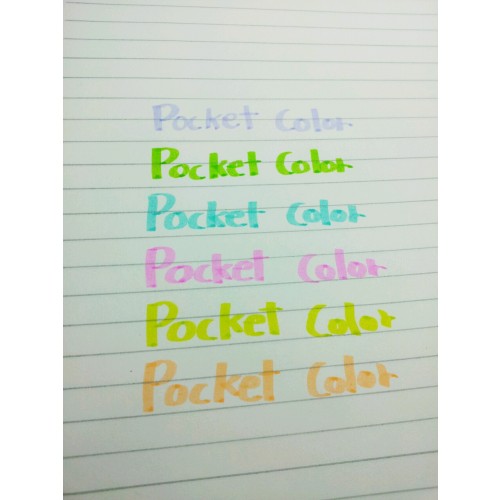 Pocket Color
Pocket Color
Pocket Color
Pocket Color
Pocket Color
Pocket Color